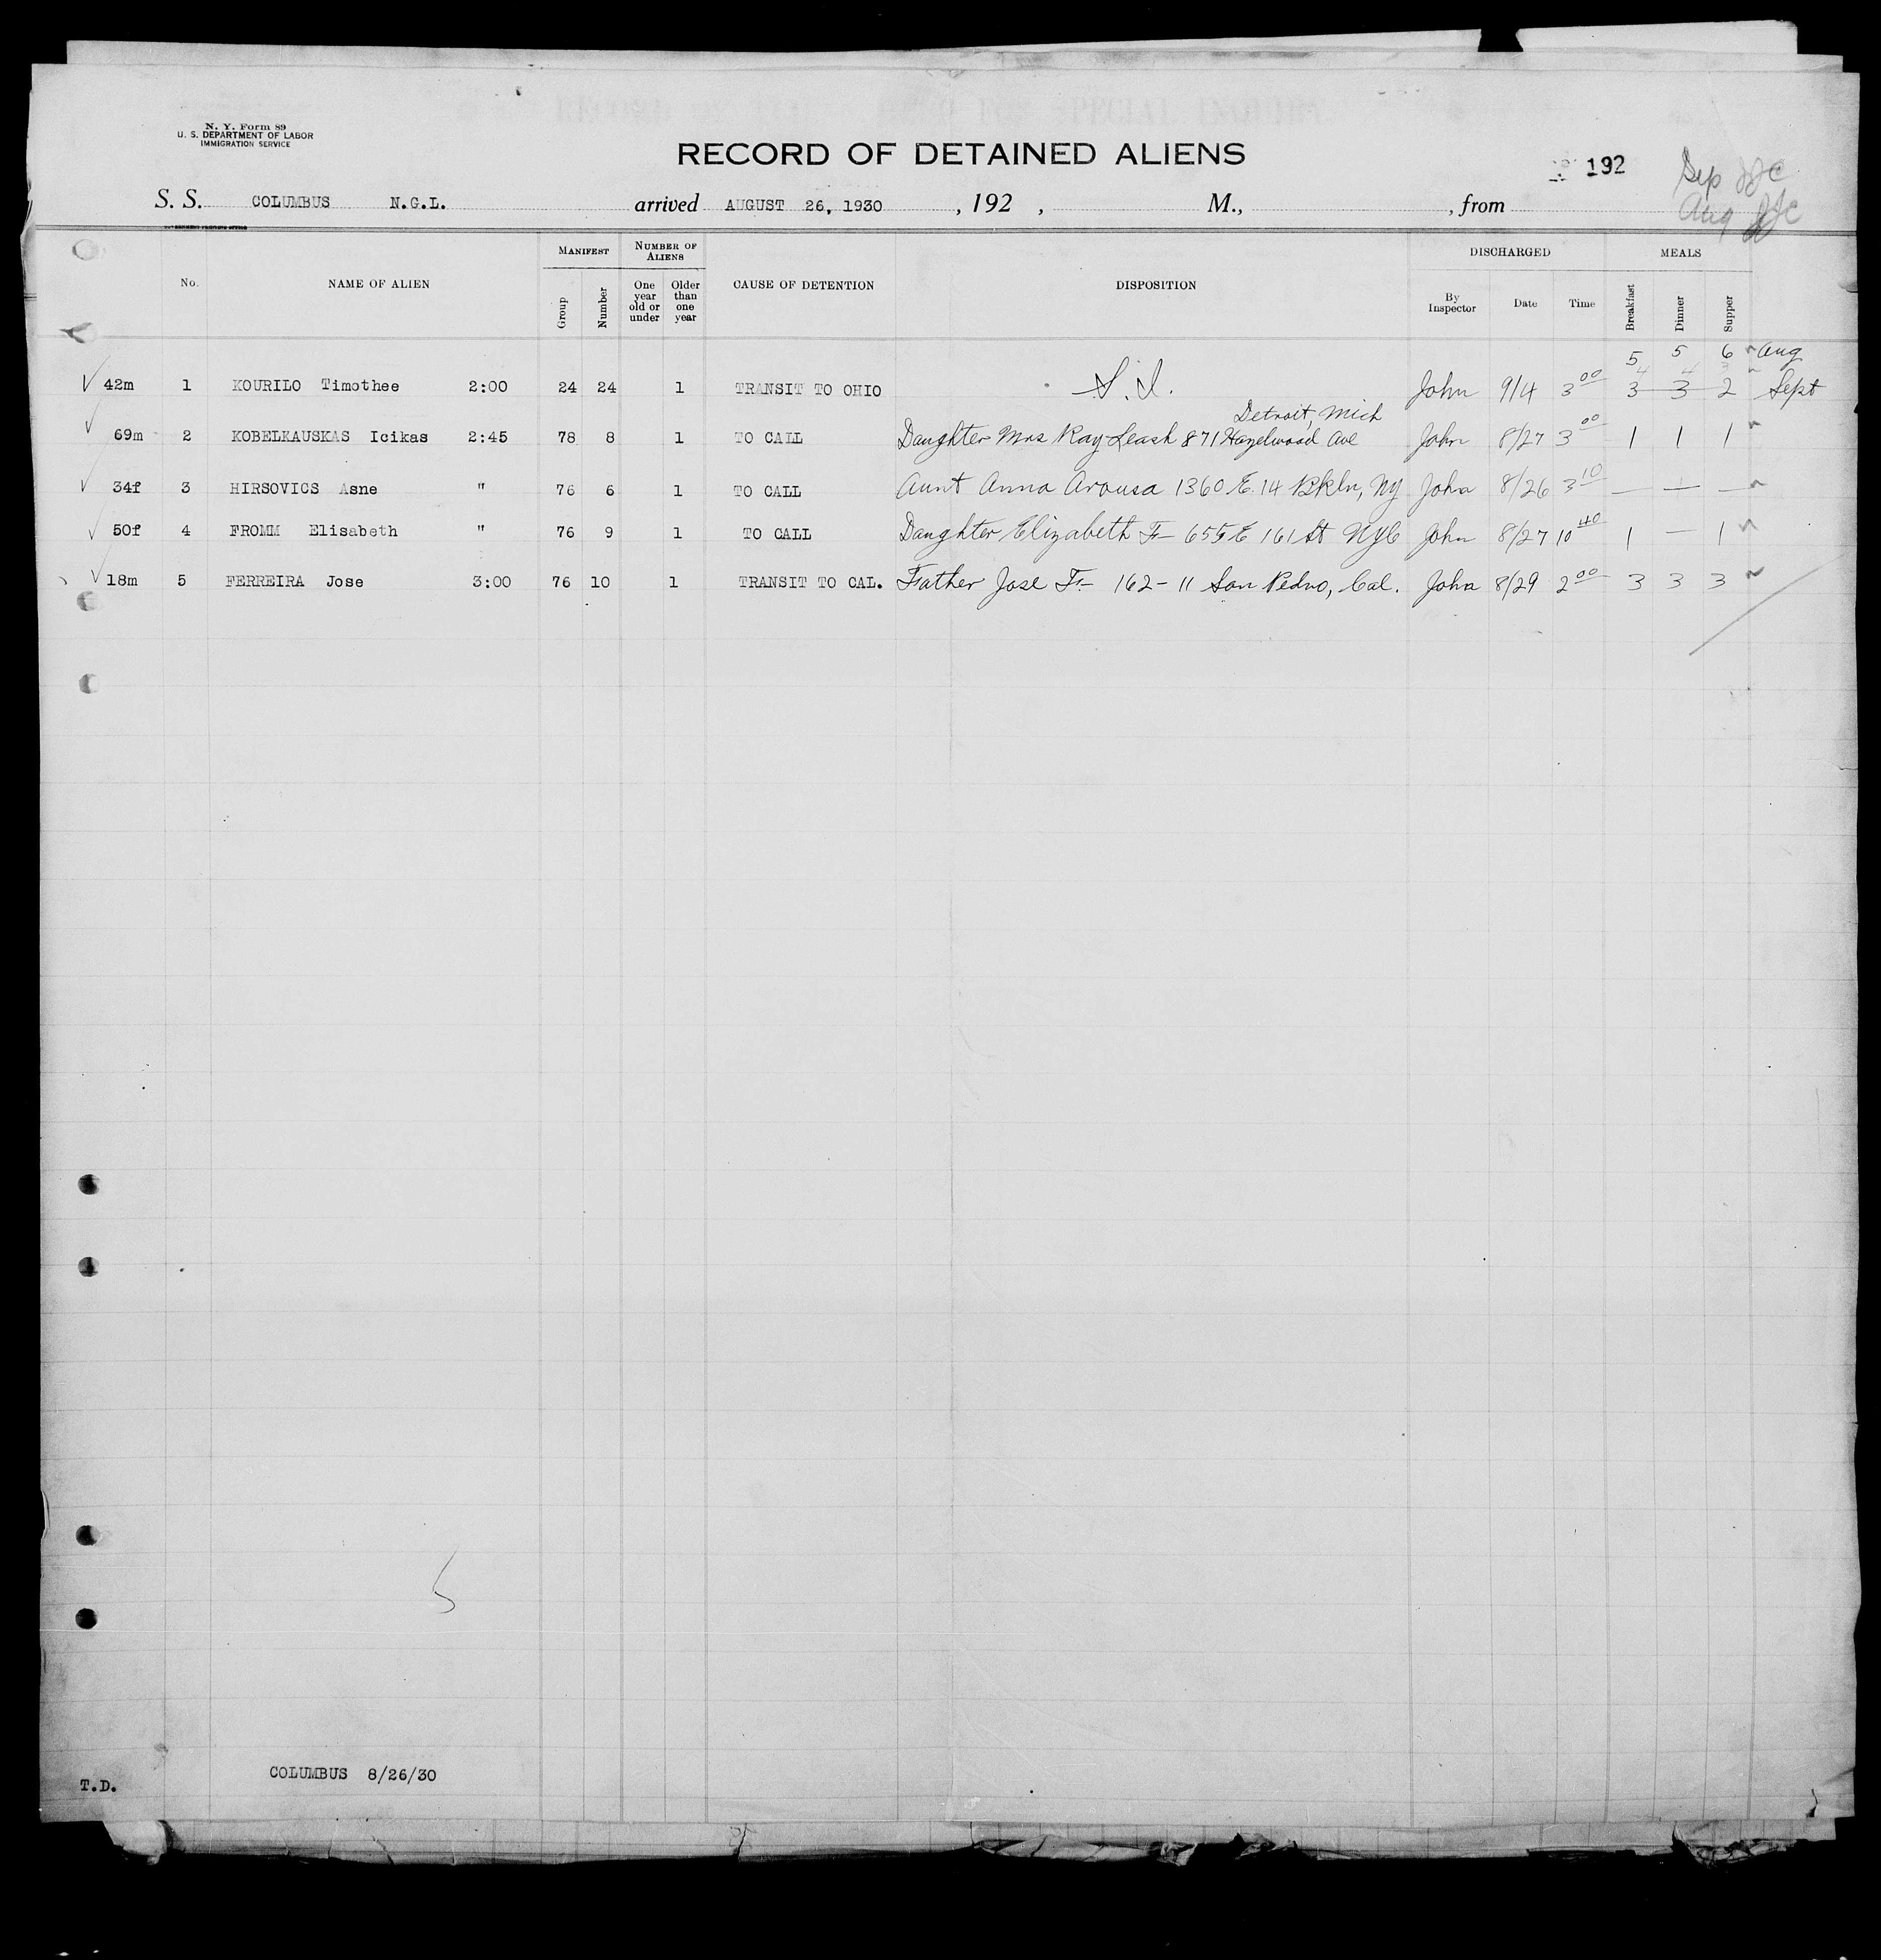 N. Y. Form 89
U. S. DEPARTMENT OF LABOR
IMMIGRATION SERVICE
RECORD OF DETAINED ALIENS
192
Sep JJC
Aug JJC
S. S. COLUMBUS N.G.L. arrived AUGUST 26, 1930, 192 , M., , from
GOVERNMENT PRINTING OFFICE
No. NAME OF ALIEN MANIFEST Group Number NUMBER OF ALIENS One year old or under Older than one year CAUSE OF DETENTION DISPOSITION DISCHARGED By Inspector Date Time MEALS Breakfast Dinner Supper
5 5 6 Aug
42m 1 KOURILO Timothee 2:00 24 24 1 TRANSIT TO OHIO S.I. John 9/4 3 00 3 3 2 Sept
Detroit, Mich
69m 2 KOBELKAUSKAS Icikas 2:45 78 8 1 TO CALL Daughter Mrs Ray Leash 871 Hazelwood Ave John 8/27 3 00 1 1 1
34f 3 HIRSOVICS Asne " 76 6 1 TO CALL Aunt Anna Arousa 1360 E. 14 Bkln, NY John 8/26 3 10 — 1 —
50f 4 FROMM Elisabeth " 76 9 1 TO CALL Daughter Elizabeth F— 655 E 161 St NYC John 8/27 10 40 1 — 1
18m 5 FERREIRA Jose 3:00 76 10 1 TRANSIT TO CAL. Father Jose F— 162-11 San Pedro, Cal. John 8/29 2 00 3 3 3
5
COLUMBUS 8/26/30
T.D.